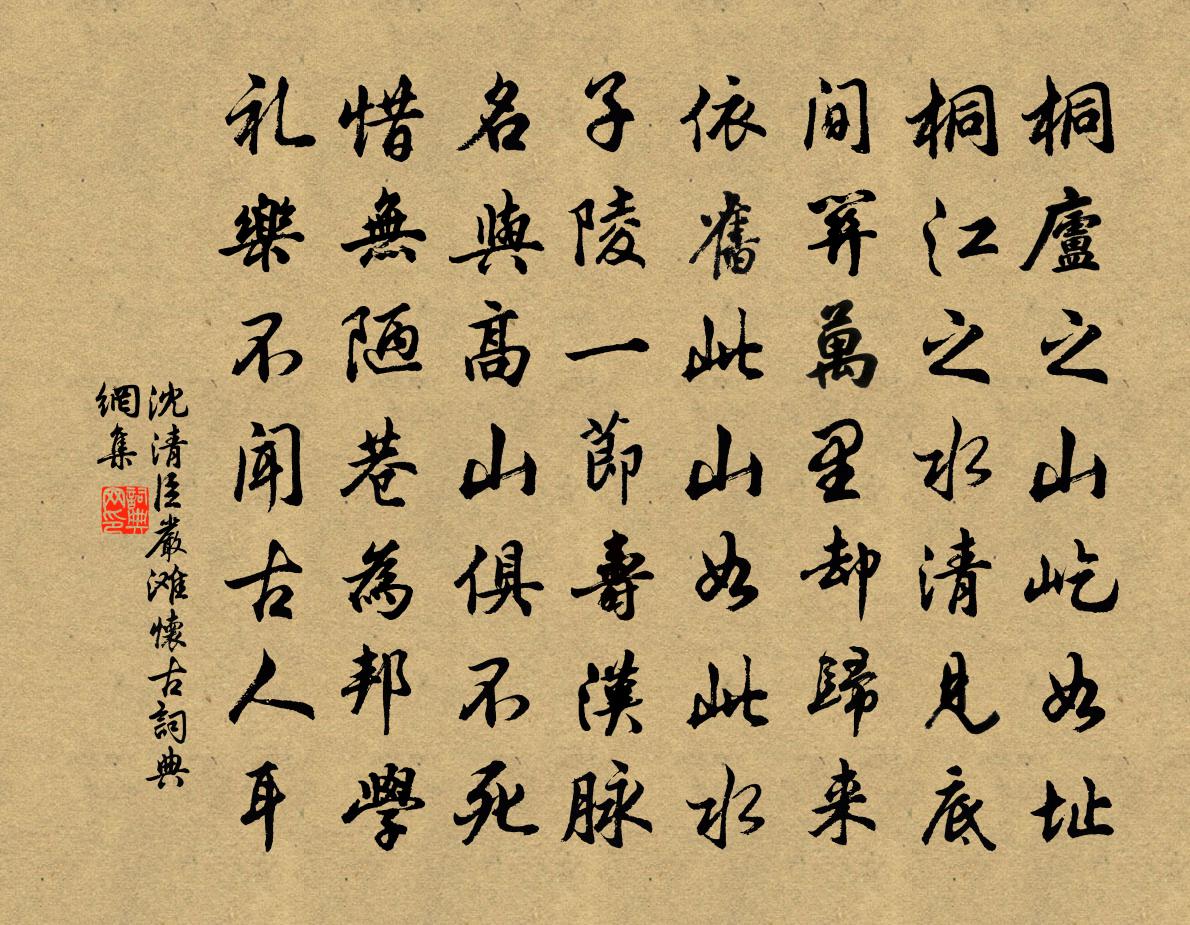 桐廬之山屹如址
桐江之水清見底
間關萬里却歸来
依舊此山如此水
子陵一節壽漢脉
名與高山俱不死
惜無陋巷為邦學
礼樂不聞古人耳
沈清臣嚴滩懷古詞典
網集
詞典
网印